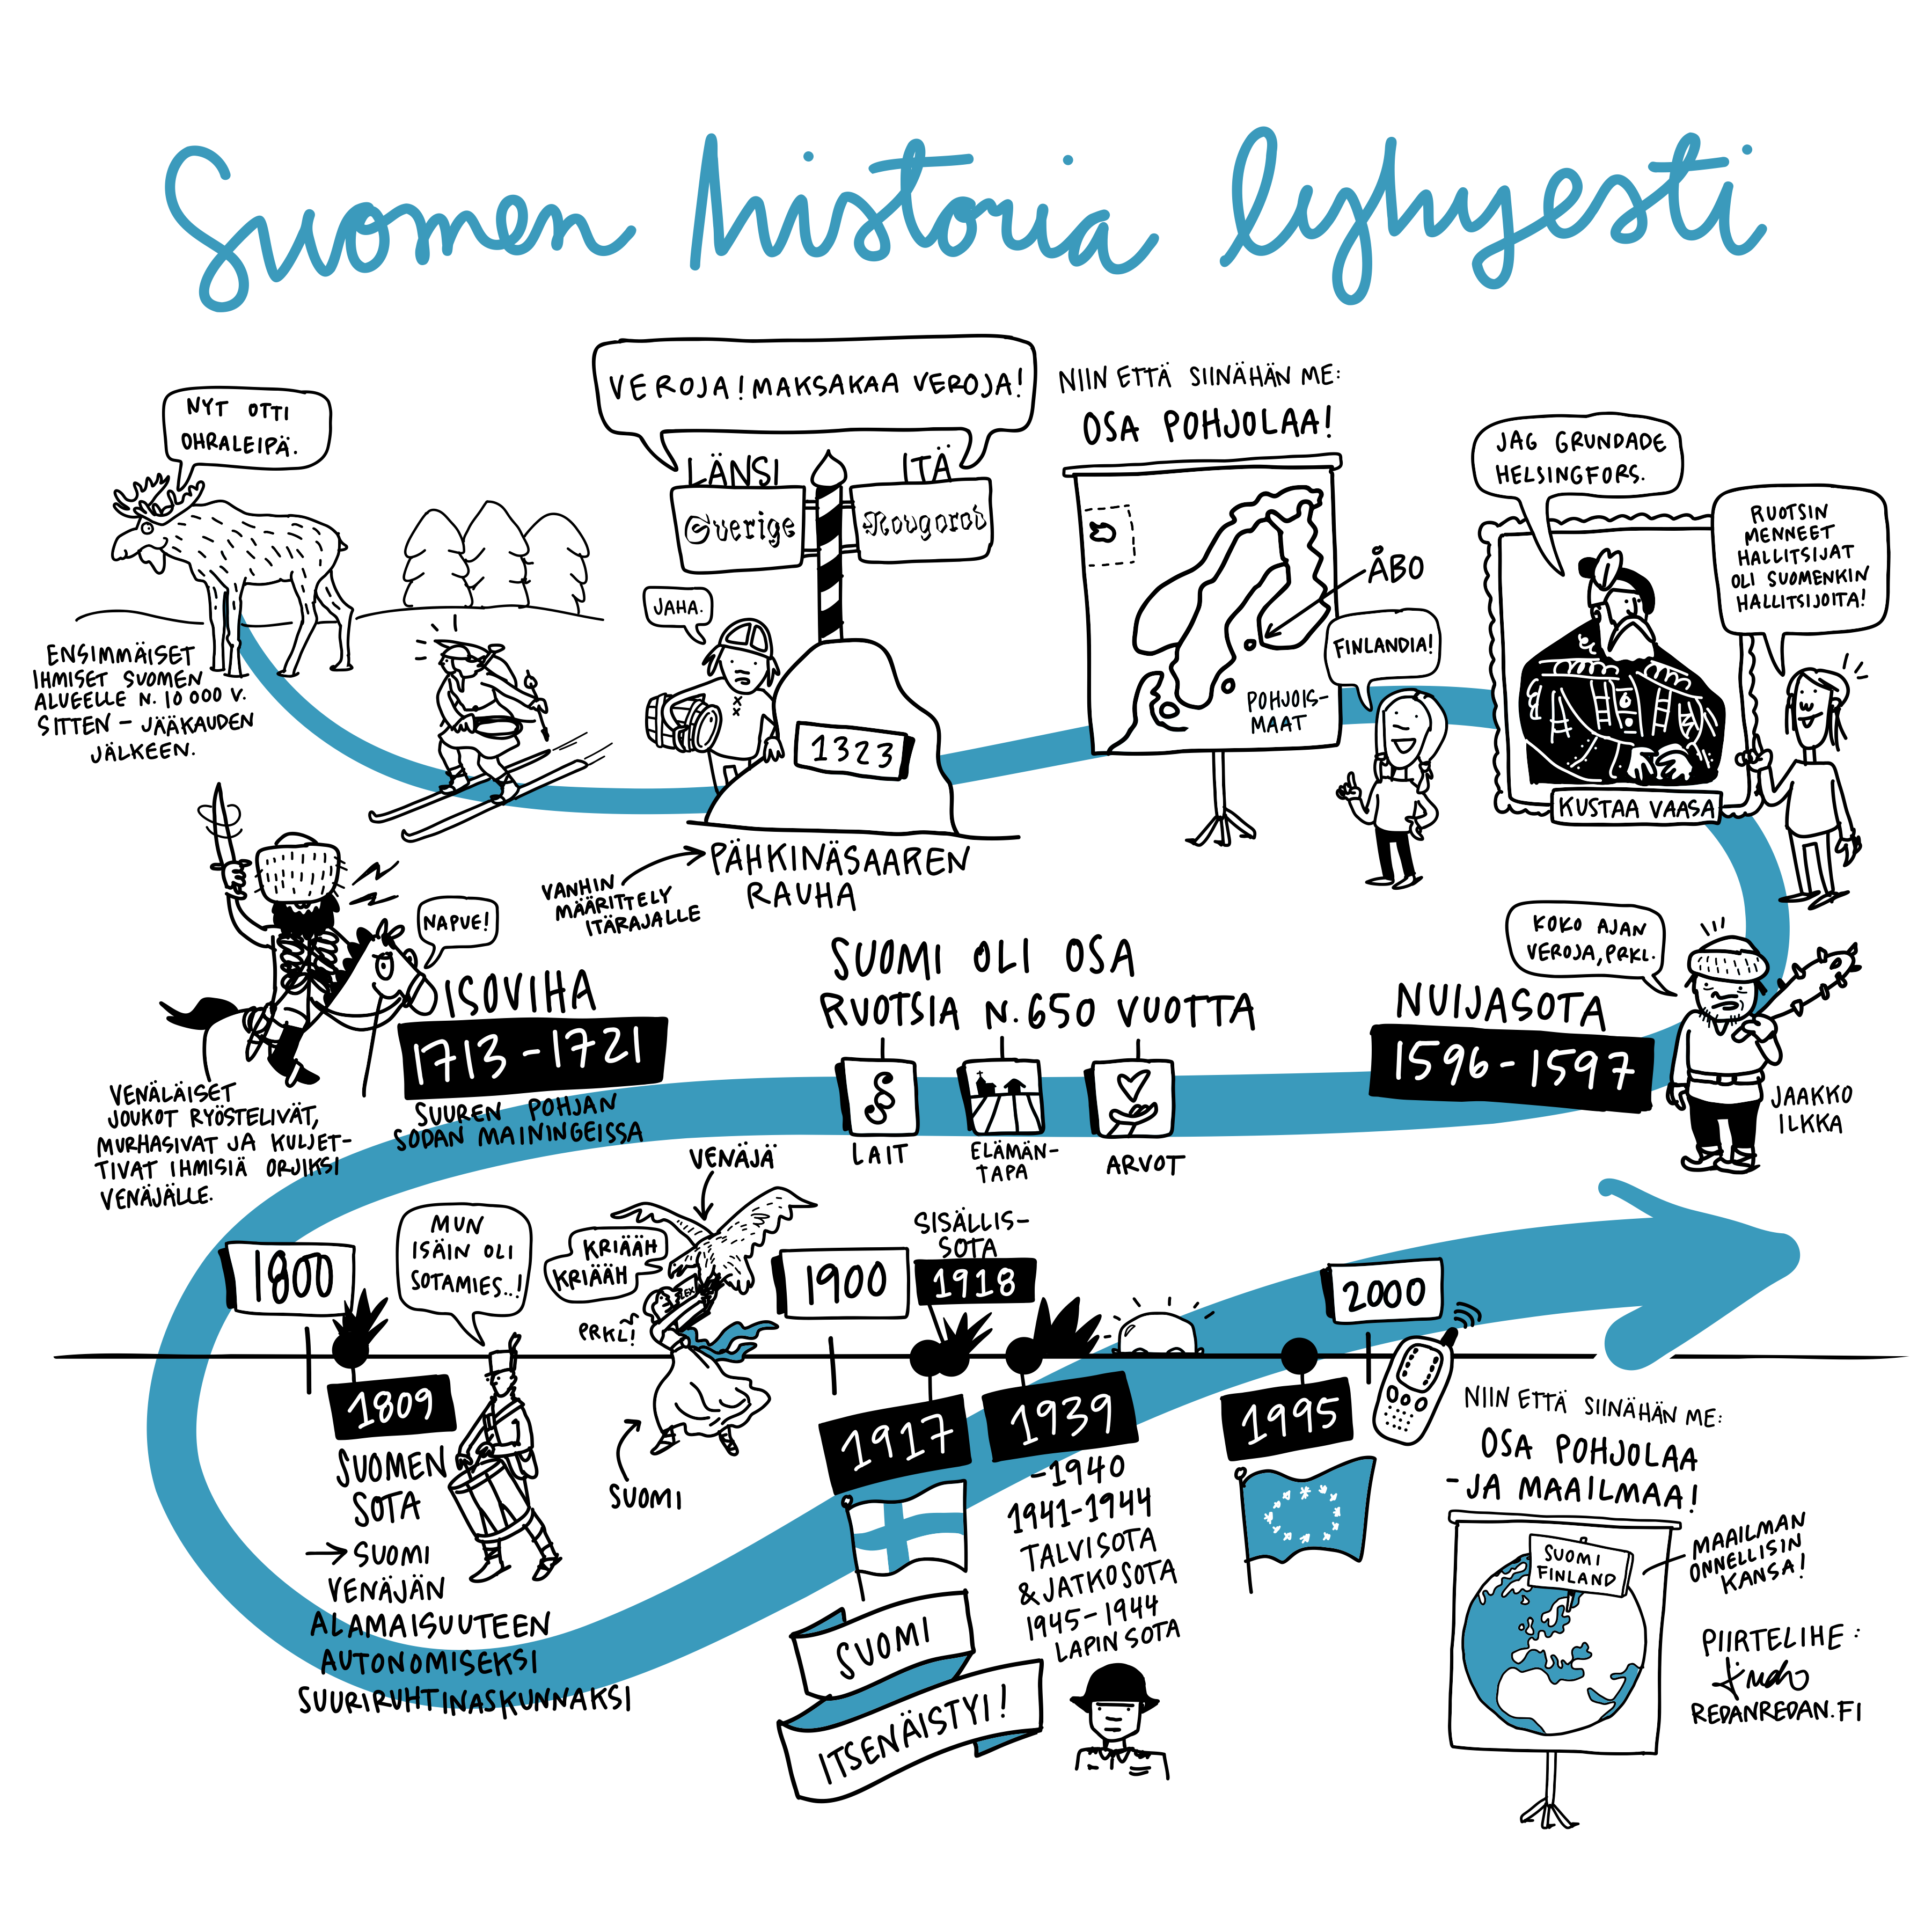 Suomen historia lyhyesti
NYT OTTI
OHRALEIPÄ.
ENSIMMÄISET
IHMISET SUOMEN
ALUEELLE N. 10 000 V.
SITTEN – JÄÄKAUDEN
JÄLKEEN.
VEROJA! MAKSAKAA VEROJA!
LÄNSI
ITÄ
Sverige
Novgorod
JAHA.
1323
VANHIN
MÄÄRITTELY
ITÄRAJALLE
PÄHKINÄSAAREN
RAUHA
NIIN ETTÄ SIINÄHÄN ME:
OSA POHJOLAA!
ÅBO
POHJOIS-
MAAT
FINLANDIA!
JAG GRUNDADE
HELSINGFORS.
KUSTAA VAASA
RUOTSIN
MENNEET
HALLITSIJAT
OLI SUOMENKIN
HALLITSIJOITA!
KOKO AJAN
VEROJA, PRKL.
NUIJASOTA
1596-1597
JAAKKO
ILKKA
SUOMI OLI OSA
RUOTSIA N. 650 VUOTTA
LAIT
ELÄMÄN-
TAPA
ARVOT
NAPUE!
ISOVIHA
1713-1721
SUUREN POHJAN
SODAN MAININGEISSA
VENÄLÄISET
JOUKOT RYÖSTELIVÄT,
MURHASIVAT JA KULJET-
TIVAT IHMISIÄ ORJIKSI
VENÄJÄLLE.
1800
1809
SUOMEN
SOTA
→ SUOMI
VENÄJÄN
ALAMAISUUTEEN
AUTONOMISEKSI
SUURIRUHTINASKUNNAKSI
MUN
ISÄIN OLI
SOTAMIES..!
VENÄJÄ
KRIÄÄH
KRIÄÄH
LEX
PRKL!
SUOMI
1900
SISÄLLIS-
SOTA
1918
1917
SUOMI
ITSENÄISTYI!
1939
-1940
1941-1944
TALVISOTA
& JATKOSOTA
1945-1944
LAPIN SOTA
1995
2000
NIIN ETTÄ SIINÄHÄN ME:
OSA POHJOLAA
- JA MAAILMAA!
SUOMI
FINLAND
MAAILMAN
ONNELLISIN
KANSA!
PIIRTELIHE:
REDANREDAN.FI